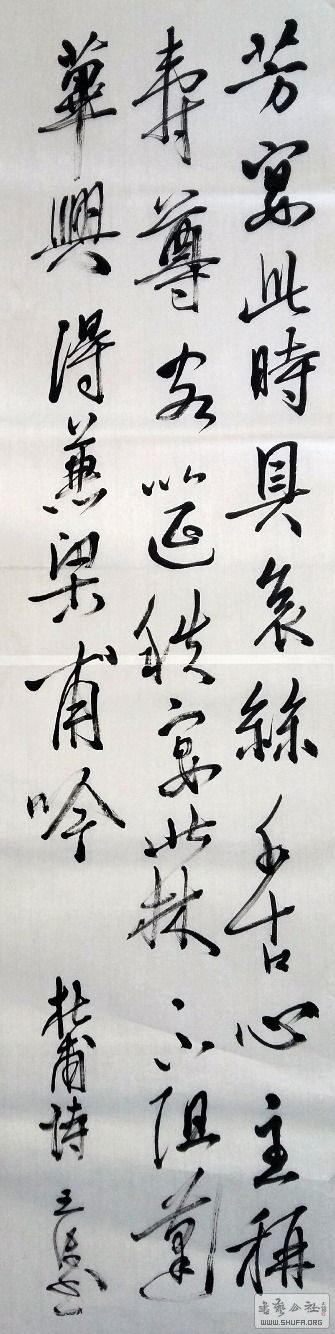 芳宴此時具哀絲千古心主稱
壽尊客筵秩宴北林不阻蓬
蓽興得兼梁甫吟
杜甫詩 王
書藝公社
WWW.SHUFA.ORG